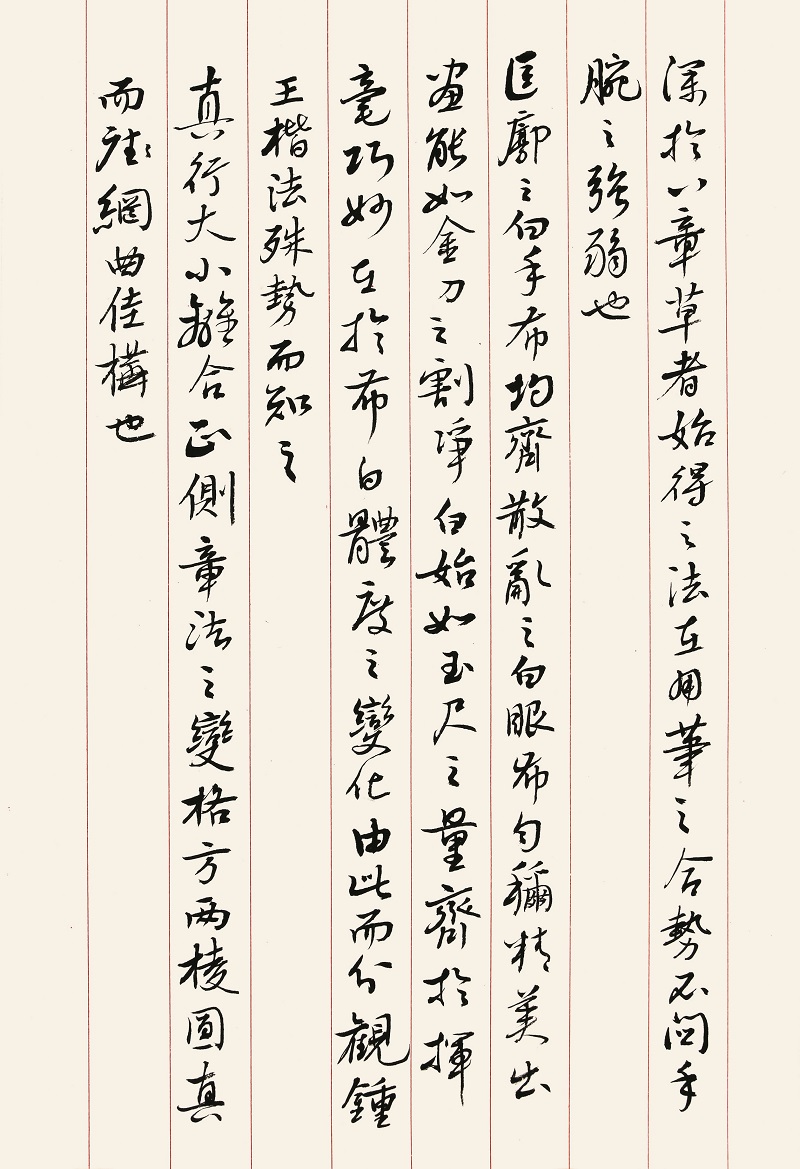 深於八章草者始得之法在用筆之合勢不問手
腕之強弱也
匡廓之白手布均齊散亂之白眼布勻稱精美出
畫能如金刀之割淨白始如玉尺之量齊於揮
毫巧妙在於布白體度之變化由此而分觀鍾
王楷法殊勢而知之
真行大小離合正側章法之變格方兩棱圓真
而 網曲佳構也